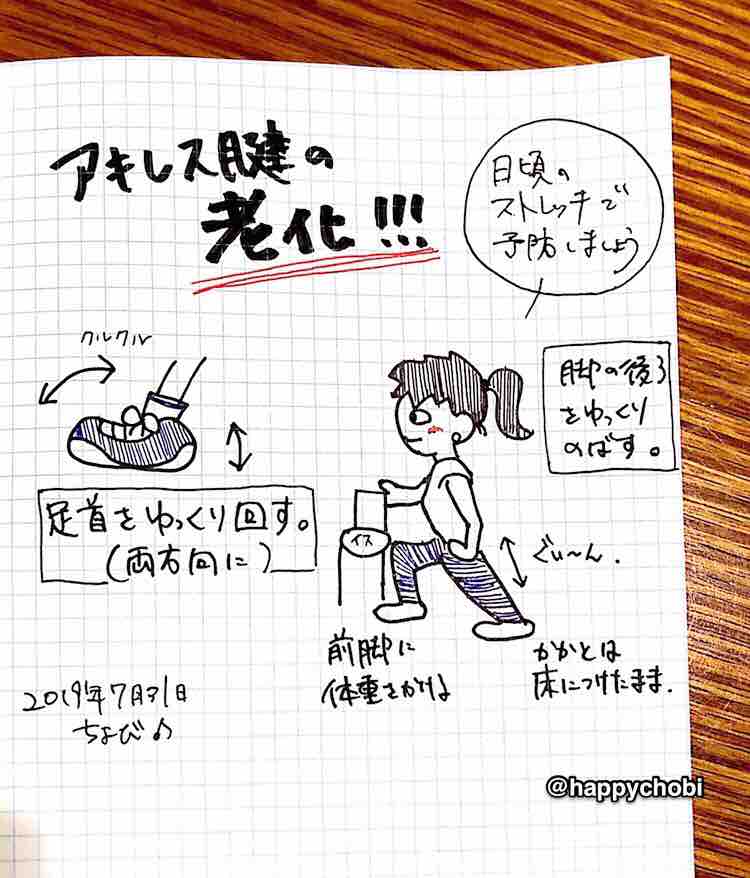 アキレス腱の
老化!!!
日頃の
ストレッチで
予防しましょう
クルクル
足首をゆっくり回す。
(両方向に)
脚の後ろ
をゆっくり
のばす。
イス
ぐぃ〜ん.
前脚に
体重をかける
かかとは
床につけたまま.
2019年7月31日
ちょび♪
@happychobi